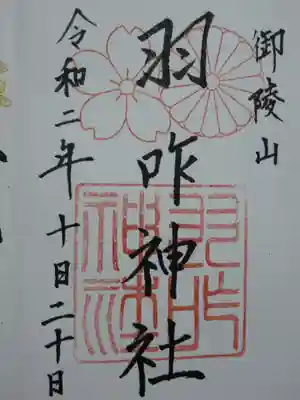 御陵山
羽咋神社
羽咋神社
令和二年十日二十日